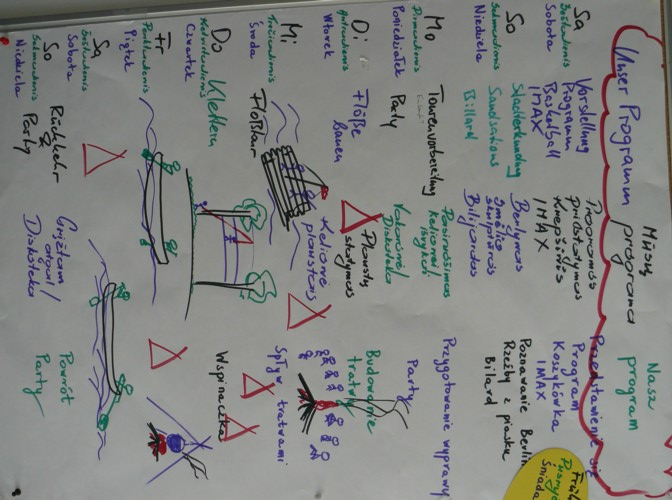 Unser Programm
Mūsų programa
Nasz program
Sa
Šeštadienis
Sobota
Vorstellung
Programm
Basketball
IMAX
Programos
pristatymas
Krepšinis
IMAX
Przedstawienie się
Program
Koszykówka
IMAX
So
Sekmadienis
Niedziela
Stadterkundung
Sandsations
Billard
Berlynas
smėlio
skulptūros
Biliardas
Poznawanie Berlin
Rzeźby z piasku
Bilard
Mo
Pirmadienis
Poniedziałek
Tourenvorbereitung
Party
Pasiruošimas
kelionei
Vakaronė/
Diskoteka
Przygotowanie wyprawy
Party
Di
Antradienis
Wtorek
Flöße
bauen
Plaustų
statymas
Budowanie
tratwy
Mi
Trečiadienis
Środa
Floßtour
Kelionė
plaustais
Spływ tratwami
Do
Ketvirtadienis
Czwartek
Klettern
Wspinaczka
Fr
Penktadienis
Piątek
Sa
Šeštadienis
Sobota
So
Sekmadienis
Niedziela
Rückkehr
Party
Grįžtam
atgal/
Diskoteka
Powrót
Party